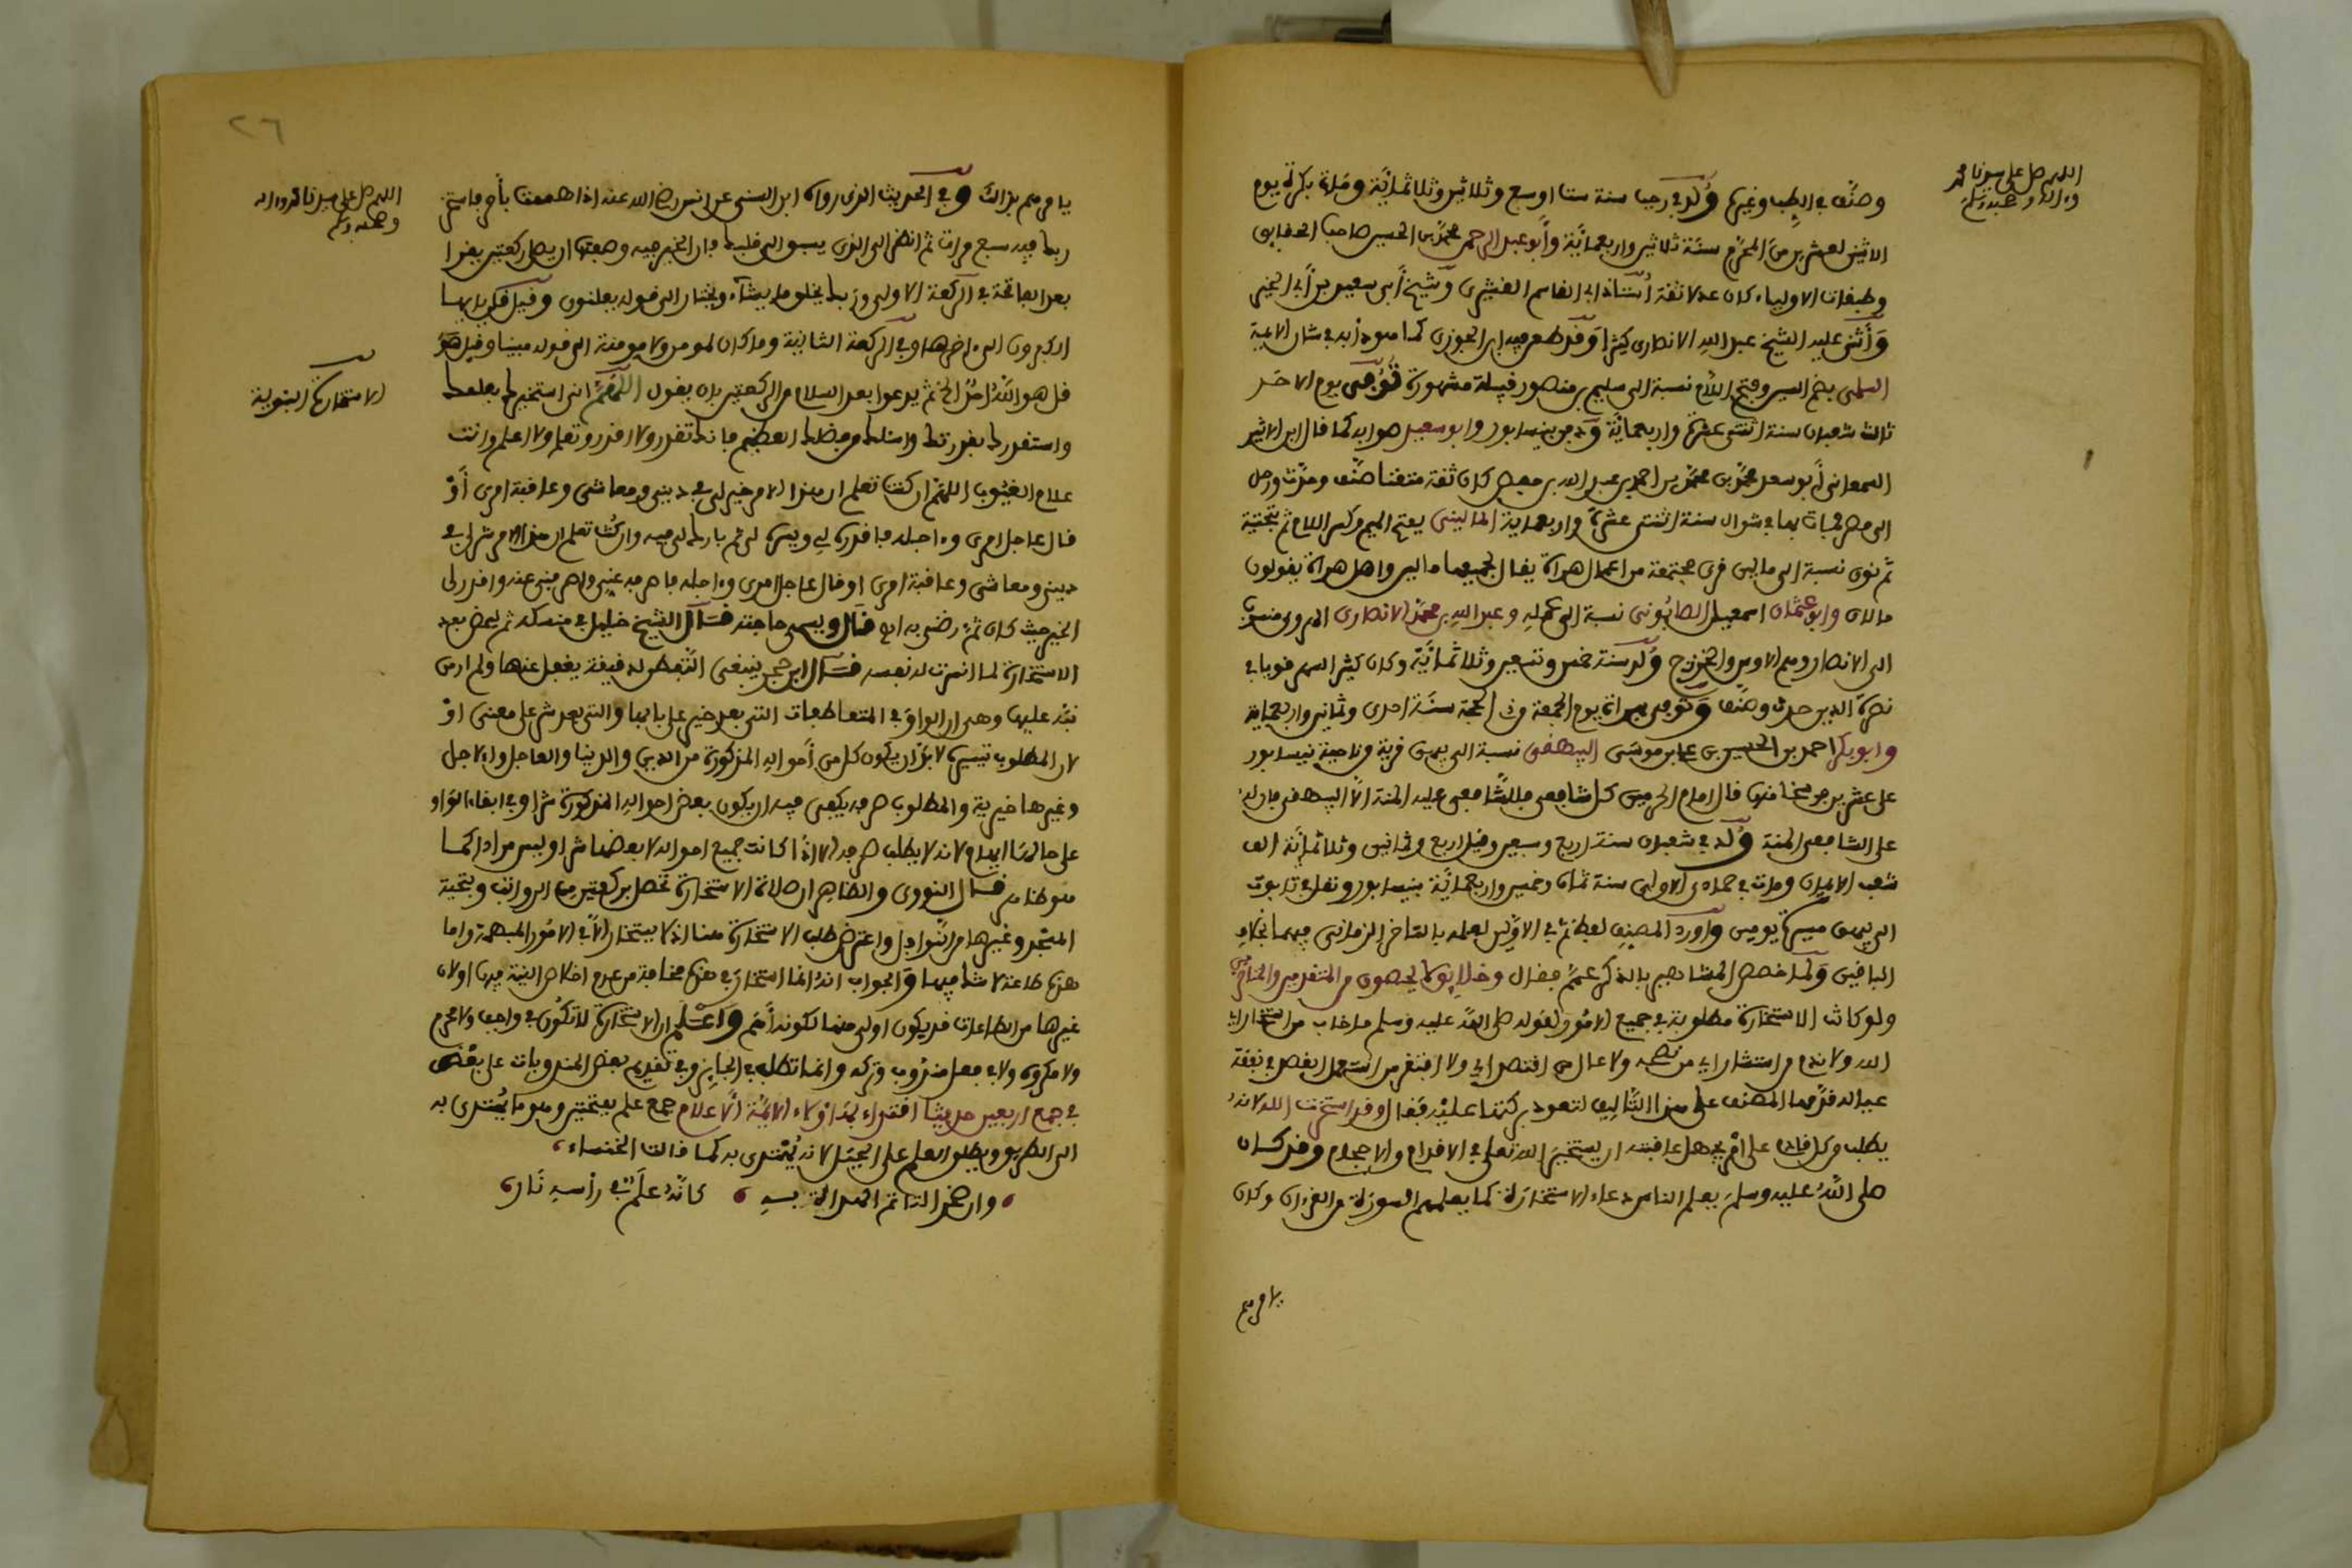 اللهم صل على سيدنا محمد
وءاله وصحبه وسلم
وصنف في الطب وغيره ولد في رجب سنة ست او سبع وثلاثين وثلاثمائة ومات بكرة يوم
الاثنين لعشرين من المحرم سنة ثلاثين واربعمائة وأبو عبد الرحمن محمد بن الحسين صاحب الحقايق
وطبقات الاولياء كان عدلا ثقة أستاذ ابي القاسم القشيري وشيخ أبي سعيد بن أبي الخير
وأثنى عليه الشيخ عبد الله الانصاري كثيرا وقد طعن فيه ابن الجوزي كما هو دأبه في شان الائمة
السلمي بضم السين وفتح اللام نسبة الى سليم بن منصور قبيلة مشهورة توفى يوم الاحد
ثالث شعبان سنة اثنتي عشرة واربعمائة ودفن بنيسابور وابو سعيد صوابه كما قال ابن الاثير
السمعاني أبو سعد محمد بن احمد بن عبد الله بن حفص كان ثقة متقنا صنف وحدث ورحل
الى مصر فمات بها في شوال سنة اثنتي عشرة واربعماية الماليني بفتح الميم وكسر اللام ثم بتحتية
ثم نون نسبة الى مالين قرى مجتمعة من اعمال هراة يقال لجميعها مالين واهل هراة يقولون
مالان وابو عثمان اسمعيل الصابوني نسبة الى عمله وعبد الله بن محمد الانصاري الهروي منسوب
الى الانصار وهم الاوس والخزرج ولد سنة خمس وتسعين وثلاثمائة وكان كثير السهر قويا في
نصرة الدين حدث وصنف وتوفى بهراة يوم الجمعة في ذي الحجة سنة احدى وثمانين واربعماية
وابو بكر احمد بن الحسين بن علي بن موسى البيهقي نسبة الى بيهق قرية وناحية نيسابور
على عشرين فرسخا منها قال امام الحرمين كل شافعي فللشافعي عليه المنة الا البيهقي فان له
على الشافعي المنة ولد في شعبان سنة اربع وسبعين وقيل اربع وثمانين وثلاثمائة الف
شعب الايمان ومات في جمادى الاولى سنة ثمان وخمسين واربعمائة بنيسابور ونقل في تابوت
الى بيهق مسيرة يومين وأورد المصنف لفظ ثم في الاولين لعلمه بالتاخر الزماني فيهما بخلاف
الباقين ولما خصص المشاهير بالذكر عمم فقال وخلايق لا يحصون من المتقدمين والمتأخرين
ولو كانت الاستخارة مطلوبة في جميع الامور لقوله صلى الله عليه وسلم ما خاب من استخار
الله ولا ندم من استشار اي من نصحه ولا عال من اقتصد اي ولا افتقر من استعمل القصد في نفقة
عياله قدمها المصنف على هذا التاليف لتعود بركتها عليه فقال وقد استخرت الله لانه
يطلب من كل قادم على امر يجهل عاقبته ان يستخير الله تعالى في الاقدام والاحجام وقد كان
صلى الله عليه وسلم يعلم الناس دعاء الاستخارة كما يعلمهم السورة من القرءان وكان
يامرهم
٢٦
اللهم صل على سيدنا محمد وءاله
وصحبه وسلم
يامرهم بذالك وفي الحديث الذي رواه ابن السني عن انس رضي الله عنه اذا هممت بأمر فاستخر
ربك فيه سبع مرات ثم انظر الى الذي يسبق الى قلبك فان الخير فيه وصفتها ان يصلي ركعتين يقرا
بعد الفاتحة في الركعة الاولى وربك يخلق ما يشاء ويختار الى قوله يعلنون وقيل قل يايها
الكافرون الى ءاخرها وفي الركعة الثانية وما كان لمومن ولا مومنة الى قوله مبينا وقيل هو
الاستخارة النبوية
قل هو الله احد الخ ثم يدعوا بعد السلام من الركعتين بان يقول اللهم اني استخيرك بعلمك
واستقدرك بقدرتك واسئلك من فضلك العظيم فانك تقدر ولا اقدر وتعلم ولا اعلم وانت
علام الغيوب اللهم ان كنت تعلم ان هذا الامر خير لي في ديني ومعاشي وعاقبة امري أو
قال عاجل امري وءاجله فاقدره لي ويسره لي ثم بارك لي فيه وان كنت تعلم ان هذا الامر شر لي في
ديني ومعاشي وعاقبة امري او قال عاجل امري وءاجله فاصرفه عني واصرفني عنه واقدر لي
الخير حيث كان ثم رضني به اي قال ويسمي حاجته قال الشيخ خليل في منسكه ثم ليمض بعد
الاستخارة لما انشرحت له نفسه قال ابن حجر ينبغي التفطن لدقيقة يغفل عنها ولم ار من
نبه عليها وهي ان الواو في المتعاطفات التي بعد خير على بابها والتي بعد شر على معنى او
لان المطلوب تيسيره لا بد ان يكون كل من أحواله المذكورة من الدين والدنيا والعاجل والاجل
وغيرها خيرية والمطلوب صرفه يكفي فيه ان يكون بعض احواله المذكورة شرا وفي ابقاء الواو
على حالها ايهام لانه لا يطلب صرفه الا اذا كانت جميع احواله لا بعضها شرا وليس مرادا كما
هو ظاهر قال النووي والظاهر ان صلاة الاستخارة تحصل بركعتين من الرواتب وبتحية
المسجد وغيرها من النوافل واعترض طلب الاستخارة هنا اذ لا يستخار الا في الامور المبهمة واما
هذه طاعة لا شك فيها والجواب انه انما استخار في هذه مخافة من عدم اخلاص النية فيها او لان
غيرها من الطاعات قد يكون اولى منها لكونه أهم واعلم ان الاستخارة لا تكون في واجب ولا محرم
ولا مكروه ولا في فعل مندوب وتركه وانما تطلب في الجايز وفي تقديم بعض المندوبات على بعض
في جمع اربعين حديثا اقتداء بهؤلاء الائمة الاعلام جمع علم بفتحتين وهو ما يهتدى به
الى الطريق ويطلق العلم على الجبل لانه يهتدى به كما قالت الخنساء
وان صخرا لتاتم الهداة به كأنه علم في رأسه نار